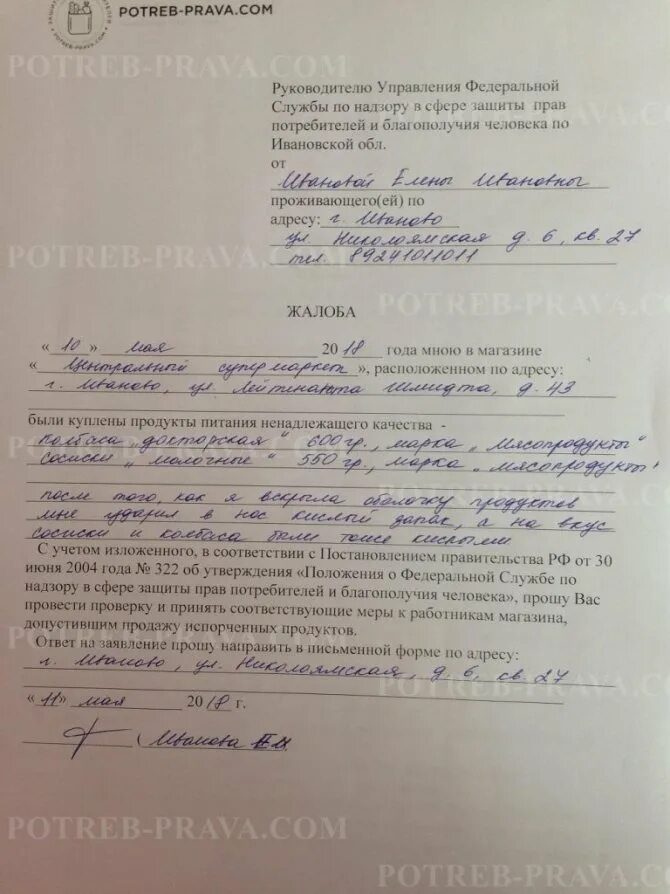 POTREB-PRAVA.COM
POTREB-PRAVA.COM
Руководителю Управления Федеральной
Службы по надзору в сфере защиты прав
потребителей и благополучия человека по
Ивановской обл.
от
Ивановой Елены Ивановны
проживающего(ей) по
адресу: г. Иваново
ул. Николоямская д. 6, кв. 27
тел. 89241011011
ЖАЛОБА
« 10 » мая 2018 года мною в магазине
« Центральный супермаркет », расположенном по адресу:
г. Иваново, ул. Лейтенанта Шмидта, д. 43
были куплены продукты питания ненадлежащего качества -
колбаса „докторская" 600 гр., марка „Мясопродукты"
сосиски „молочные" 550 гр., марка „Мясопродукты"
после того, как я вскрыла оболочку продуктов
мне ударил в нос кислый запах, а на вкус
сосиски и колбаса были тоже кислыми
С учетом изложенного, в соответствии с Постановлением правительства РФ от 30
июня 2004 года № 322 об утверждения «Положения о Федеральной Службе по
надзору в сфере защиты прав потребителей и благополучия человека», прошу Вас
провести проверку и принять соответствующие меры к работникам магазина,
допустившим продажу испорченных продуктов.
Ответ на заявление прошу направить в письменной форме по адресу:
г. Иваново, ул. Николоямская, д. 6, кв. 27
« 11» мая 2018 г.
( Иванова Е.И.
POTREB-PRAVA.COM
POTREB-PRAVA.COM
POTREB-PRAVA.COM
POTREB-PRAVA.COM
POTREB-PRAVA.COM
POTREB-PRAVA.COM
POTREB-PRAVA.COM
POTREB-PRAVA.COM
POTREB-PRAVA.COM
POTREB-PRAVA.COM